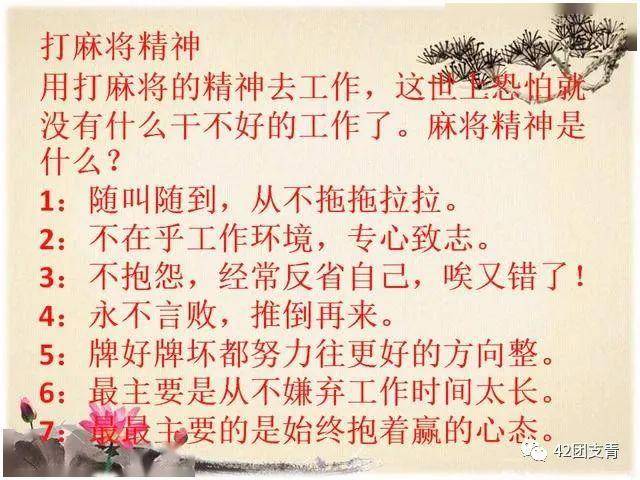 打麻将精神
用打麻将的精神去工作，这世上恐怕就
没有什么干不好的工作了。麻将精神是
什么？
1：随叫随到，从不拖拖拉拉。
2：不在乎工作环境，专心致志。
3：不抱怨，经常反省自己，唉又错了！
4：永不言败，推倒再来。
5：牌好牌坏都努力往更好的方向整。
6：最主要是从不嫌弃工作时间太长。
7：最最主要的是始终抱着赢的心态。
42团支青